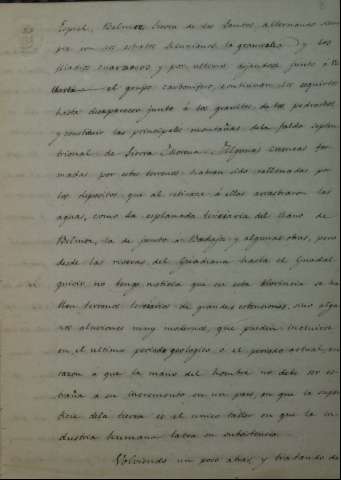 Espiel, Belmez, Sierra de los Santos, alternando siem
pre con sus estratos silurianos la grauvaka y los
silicios cuarzosos y por ultimo, junto á
el grupo carbonifero, continuan los esquistos
hasta desaparecer junto á los granitos de los pedroches
y constituir las principales montañas de la falda septen
trional de Sierra Morena. Algunas cuencas for
madas por estos terrenos habran sido rellenadas por
los depositos, que al retirarse á ellas arrastraron las
aguas, como la esplanada terciaria del llano de
Belmez, la de junto a Badajoz y algunas otras, pero
desde las riveras del Guadiana hasta el Guadal
quivir, no tengo noticia que en esta Provincia se ha
llen terrenos terciarios de grandes estensiones, sino algu
nos aluviones muy modernos, que pueden incluirse
en el ultimo periodo geologico, o el periodo actual, en
razon a que la mano del hombre no debe ser es
traña a su incremento en un pais, en que la super
ficie de la tierra es el unico taller en que la in
dustria humana labra su subsistencia.
Volviendo un poco atras, y tratando de